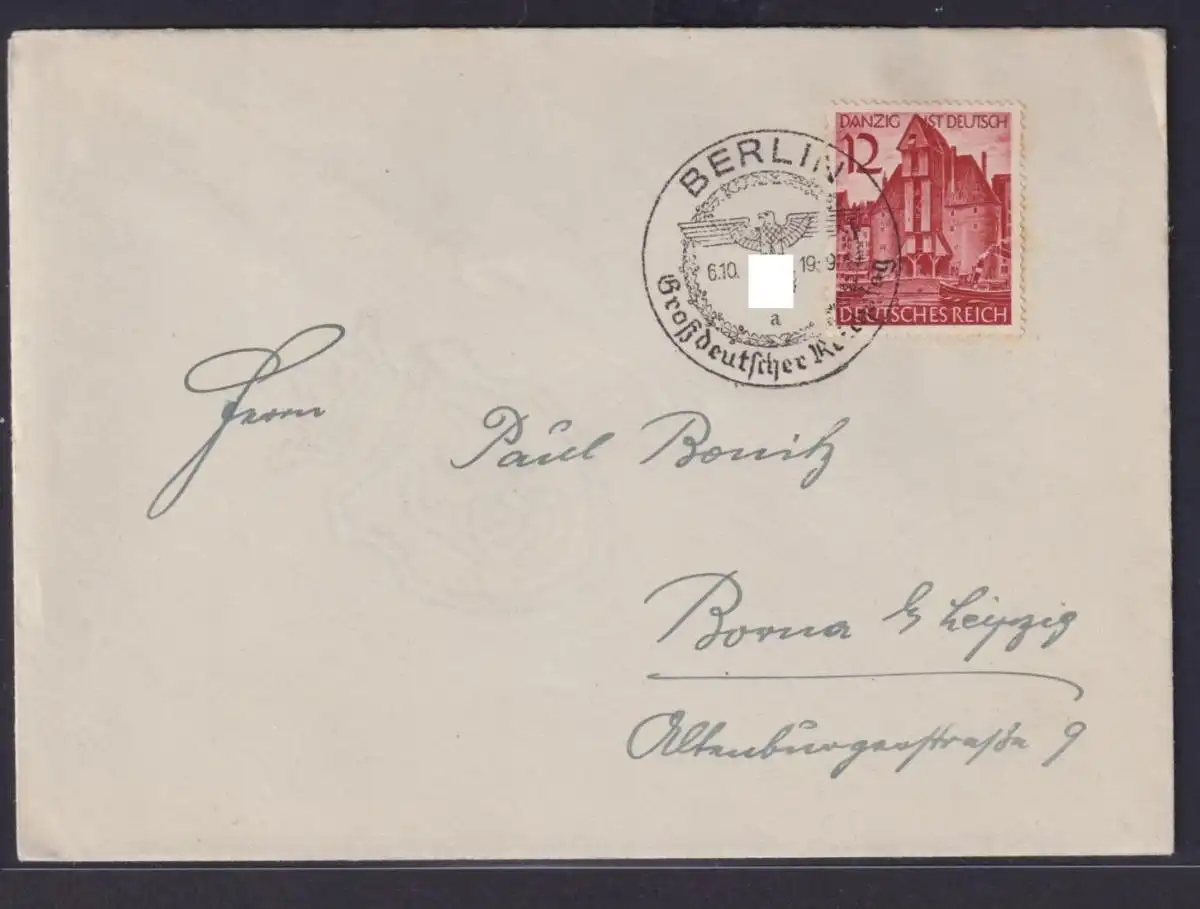 DANZIG IST DEUTSCH
12
DEUTSCHES REICH
BERLIN
6.10. 19
a
Großdeutscher
Herrn
Paul Bonitz
Borna b/ Leipzig
Altenburgerstraße 9